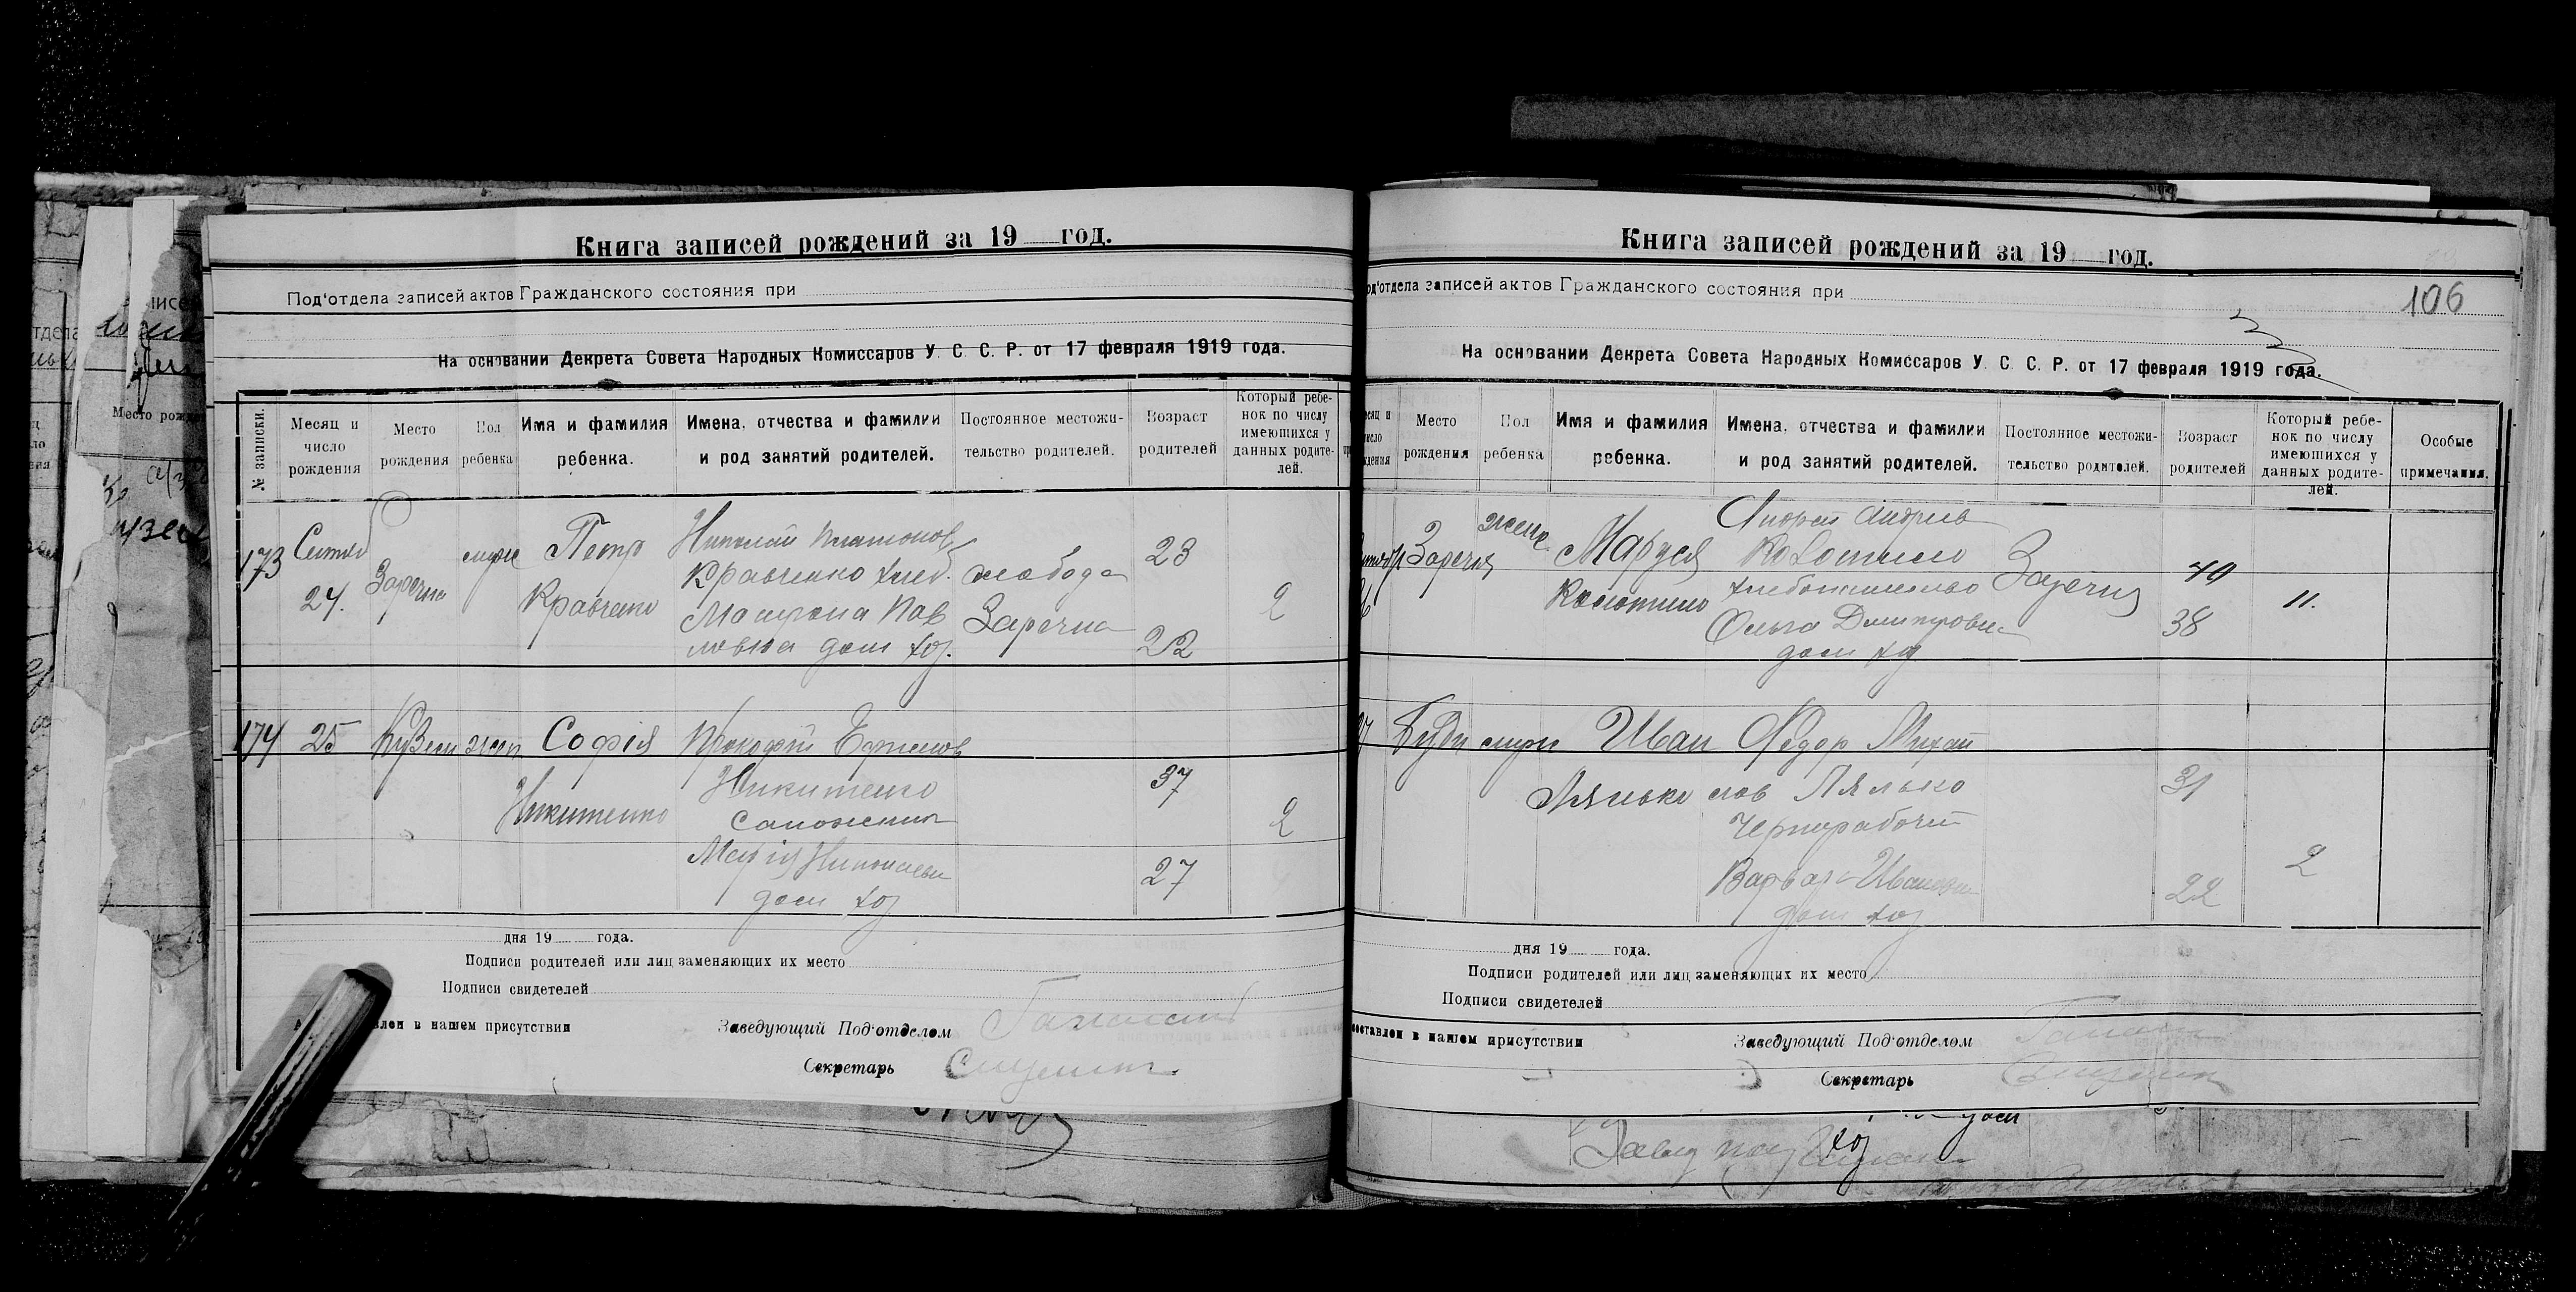 Книга записей рождений за 19 год.
Под'отдела записей актов Гражданского состояния при
На основании Декрета Совета Народных Комиссаров У. С. С. Р. от 17 февраля 1919 года.
№ записки.
Месяц и число рождения
Место рождения
Пол ребенка
Имя и фамилия ребенка.
Имена, отчества и фамилии и род занятий родителей.
Постоянное местожительство родителей.
Возраст родителей
Который ребенок по числу имеющихся у данных родителей.
173
24.
Заречна
муже
Петр
Кравченко
Николай Платонов
Кравченко хлеб.
Павловна дом хоз.
слобода
Заречна
23
22
2
174
25
жен
Софія
Никитенко
Прокофий Ефимов
Никитенко
Сапожник
Марія Николаевн
дом хоз
37
27
2
дня 19 года.
Подписи родителей или лиц заменяющих их место
Подписи свидетелей
в нашем присутствии
Заведующий Под'отделом
Секретарь
Книга записей рождений за 19 год.
отдела записей актов Гражданского состояния при
106
На основании Декрета Совета Народных Комиссаров У. С. С. Р. от 17 февраля 1919 года.
Место рождения
Пол ребенка
Имя и фамилия ребенка.
Имена, отчества и фамилии и род занятий родителей.
Постоянное местожительство родителей.
Возраст родителей
Который ребенок по числу имеющихся у данных родителей.
Особые примечания.
Заречня
женс.
Маруся
Андрей Андреев
Ольга Дмитровна
дом хоз
Заречня
40
38
11.
муж
Иван
Лялько
Федор Михайлов Лялько
Чернорабочий
Варвара Ивановн
дом хоз
31
22
2
дня 19 года.
Подписи родителей или лиц заменяющих их место
Подписи свидетелей
составлен в нашем присутствии
Заведующий Под'отделом
Секретарь